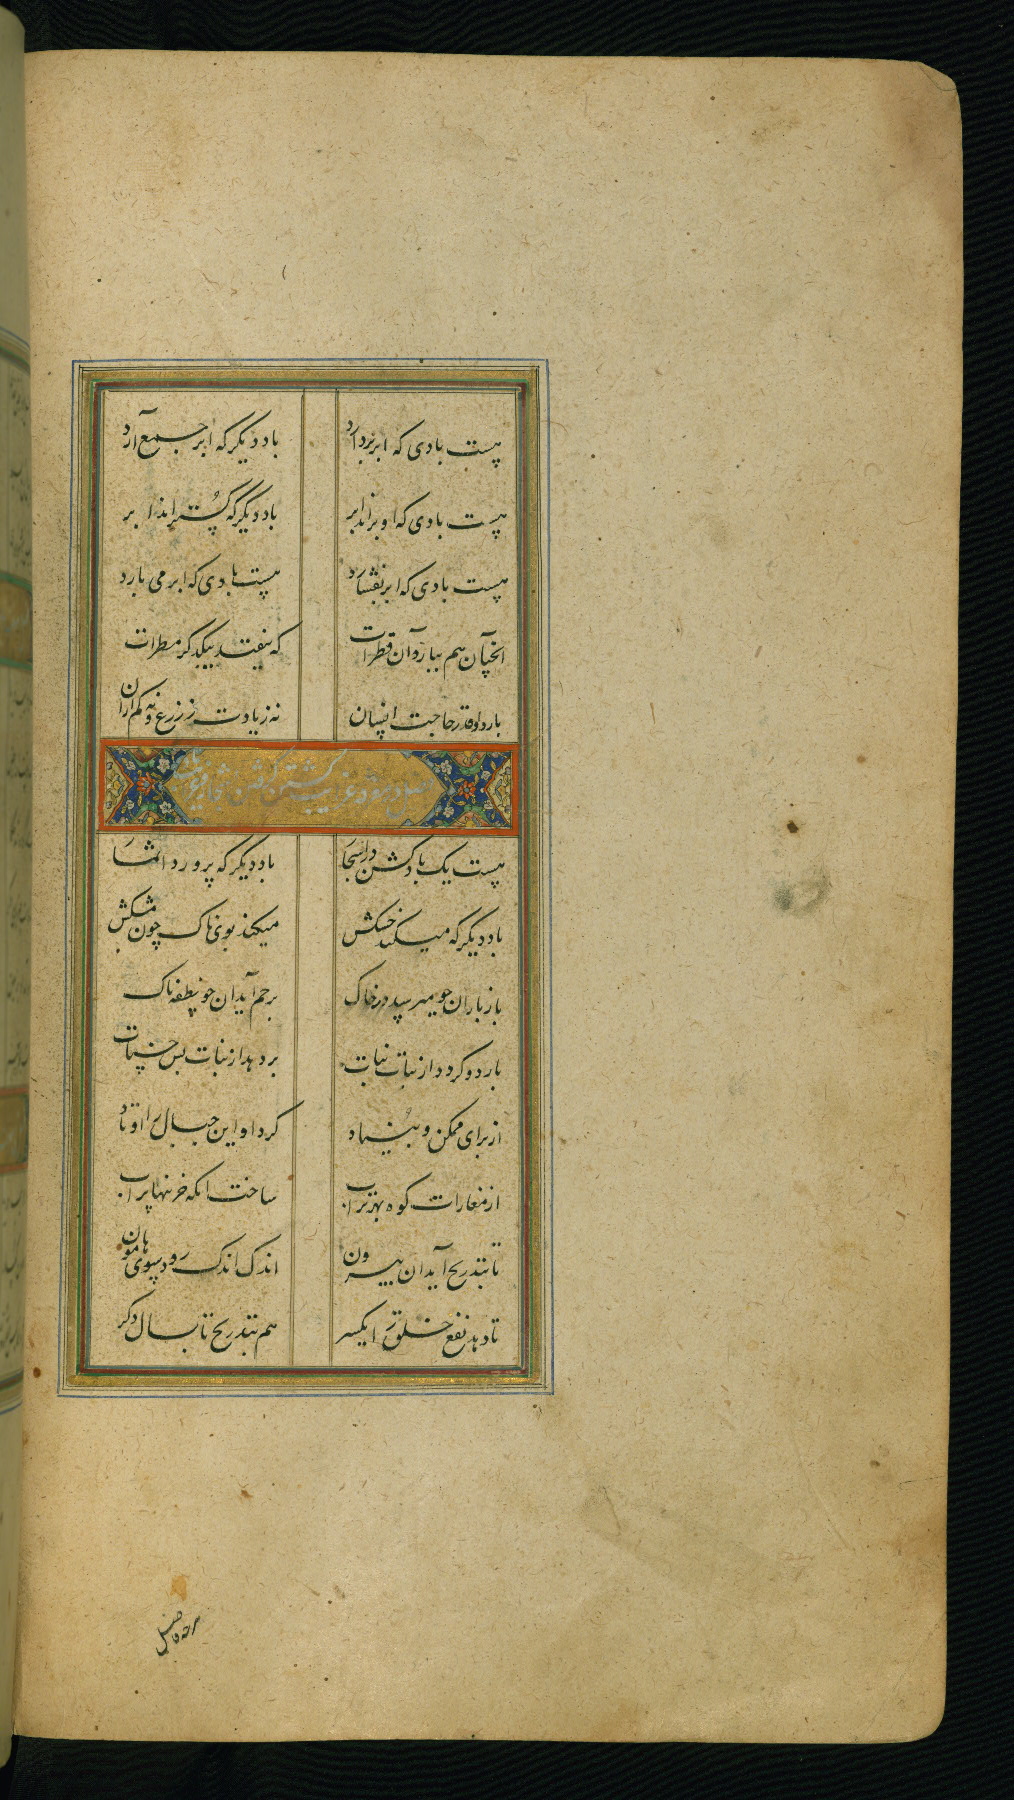 هست بادی که ابر بردارد
باد دیگر که ابر جمع آرد
هست بادی که او براند ابر
باد دیگر که گستراند ابر
هست بادی که ابر نفشارد
هست بادی که ابر می بارد
انچنان هم ببارد آن قطرات
که نیفتد بیکدگر مطرات
بارد او قدر حاجت انسان
نه زیادت ز زرع و نه کم ازان
هست یک باد کشن در اسجار
باد دیگر که پرورد اثمار
باد دیگر که میکند خشکش
میکند بوی ناک چون مشکش
باز باران چو میرسد در خاک
برحم آید ان چو نطفه پاک
بارد و کردد از نبات نبات
بردهد از نبات بس حسنات
از برای تمکن و بنیاد
کرد او این جبال را اوتاد
از مغارات کوه بهر تراب
ساخت انکه خزینها پر اب
تا بتدریح آید ان بیرون
اندک اندک رود بسوی هامون
تا دهد نفع خلق را یکسر
هم بتدریح تا بسال دکر